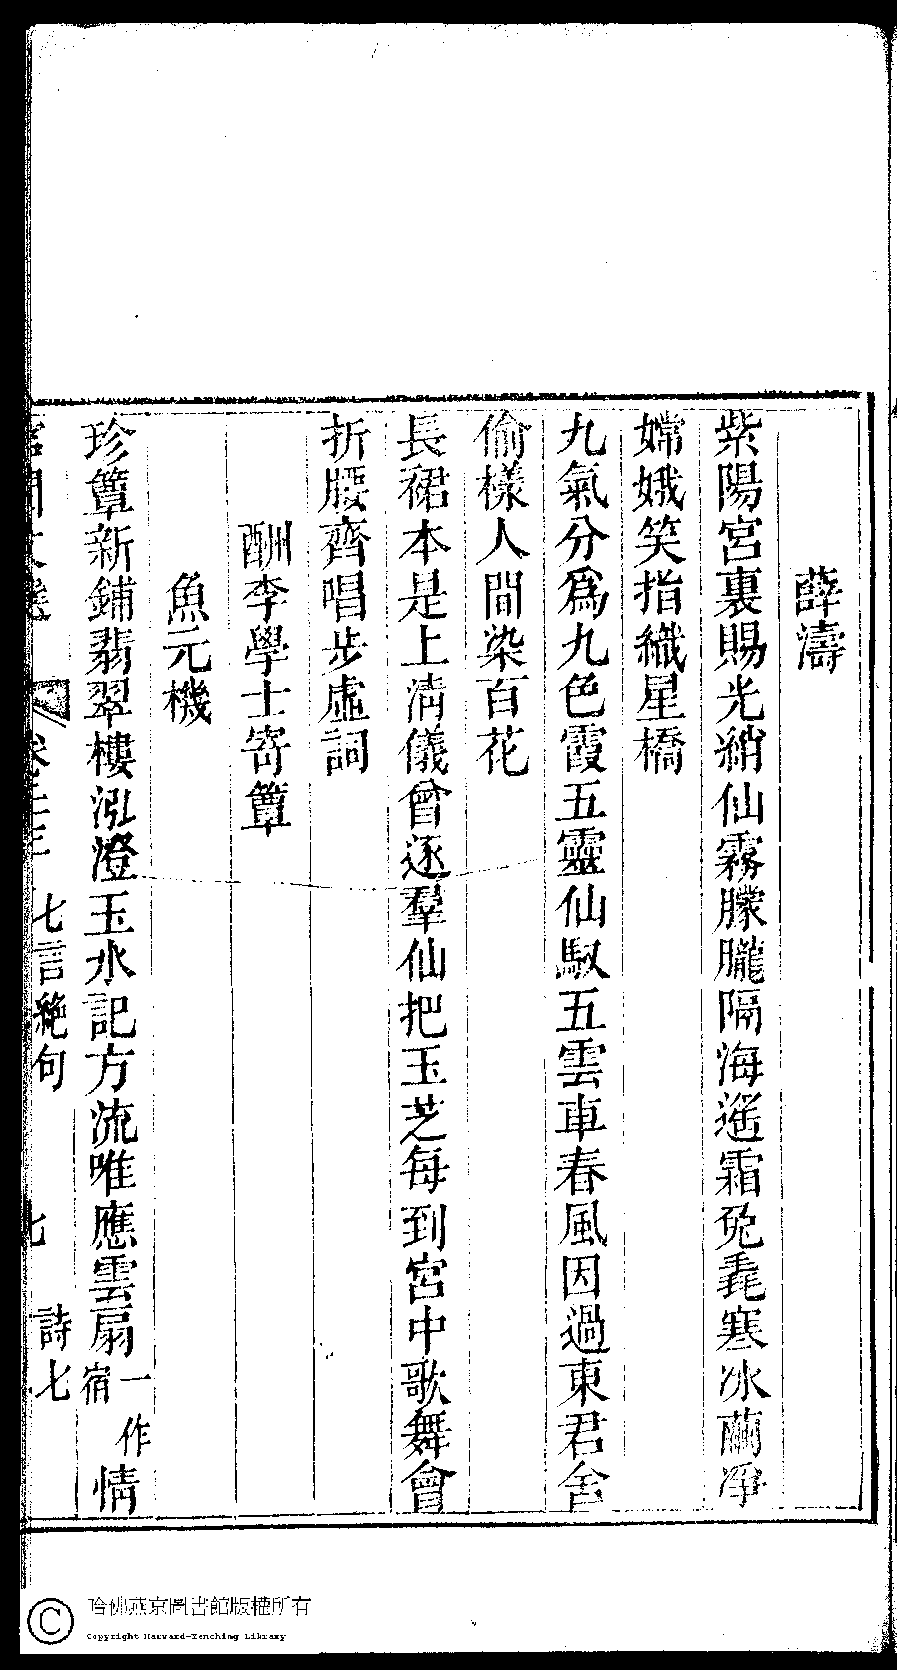 薛濤
紫陽宮裏賜光綃仙霧朦朧隔海遙霜兔毳寒冰繭淨
嫦娥笑指織星橋
九氣分爲九色霞五靈仙馭五雲車春風因過東君舍
偷樣人間染百花
長裾本是上清儀曾逐羣仙把玉芝每到宮中歌舞會
折腰齊唱步虛詞
酬李學士寄簟
魚元機
珍簟新鋪翡翠樓泓澄玉水記方流唯應雲扇一作宿情
七言絶句
詩七
哈佛燕京圖書館版權所有
Copyright Harvard-Yenching Library